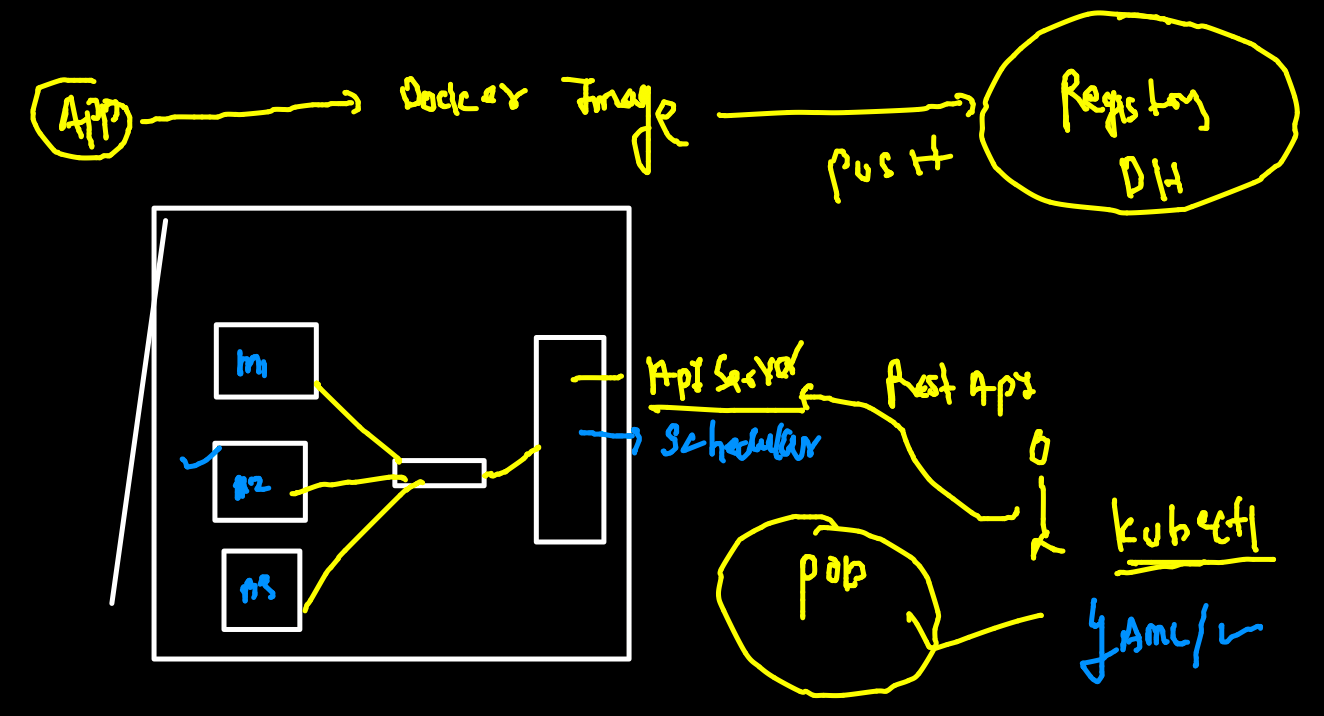 App
Docker Image
Push
Registry
DH
M1
A2
A3
Api Server
Schedular
Rest Api
Kubectl
POD
YAML/